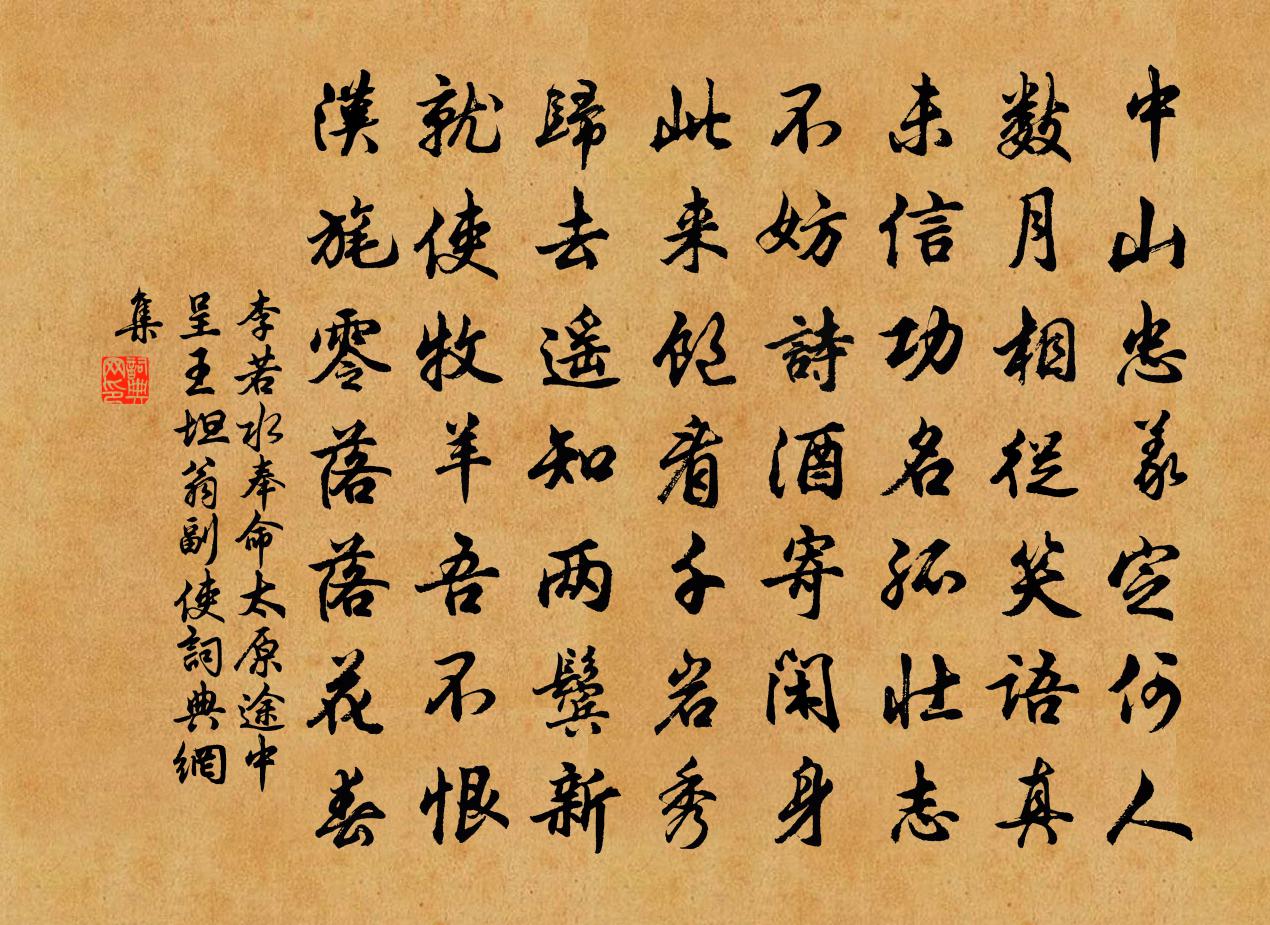 中山忠義定何人
数月相從笑語真
未信功名孤壯志
不妨詩酒寄閑身
此来飽看千岩秀
歸去遥知两鬓新
就使牧羊吾不恨
漢旄零落落花春
李若水奉命太原途中
呈王坦翁副使詞典網
集
詞典
网印